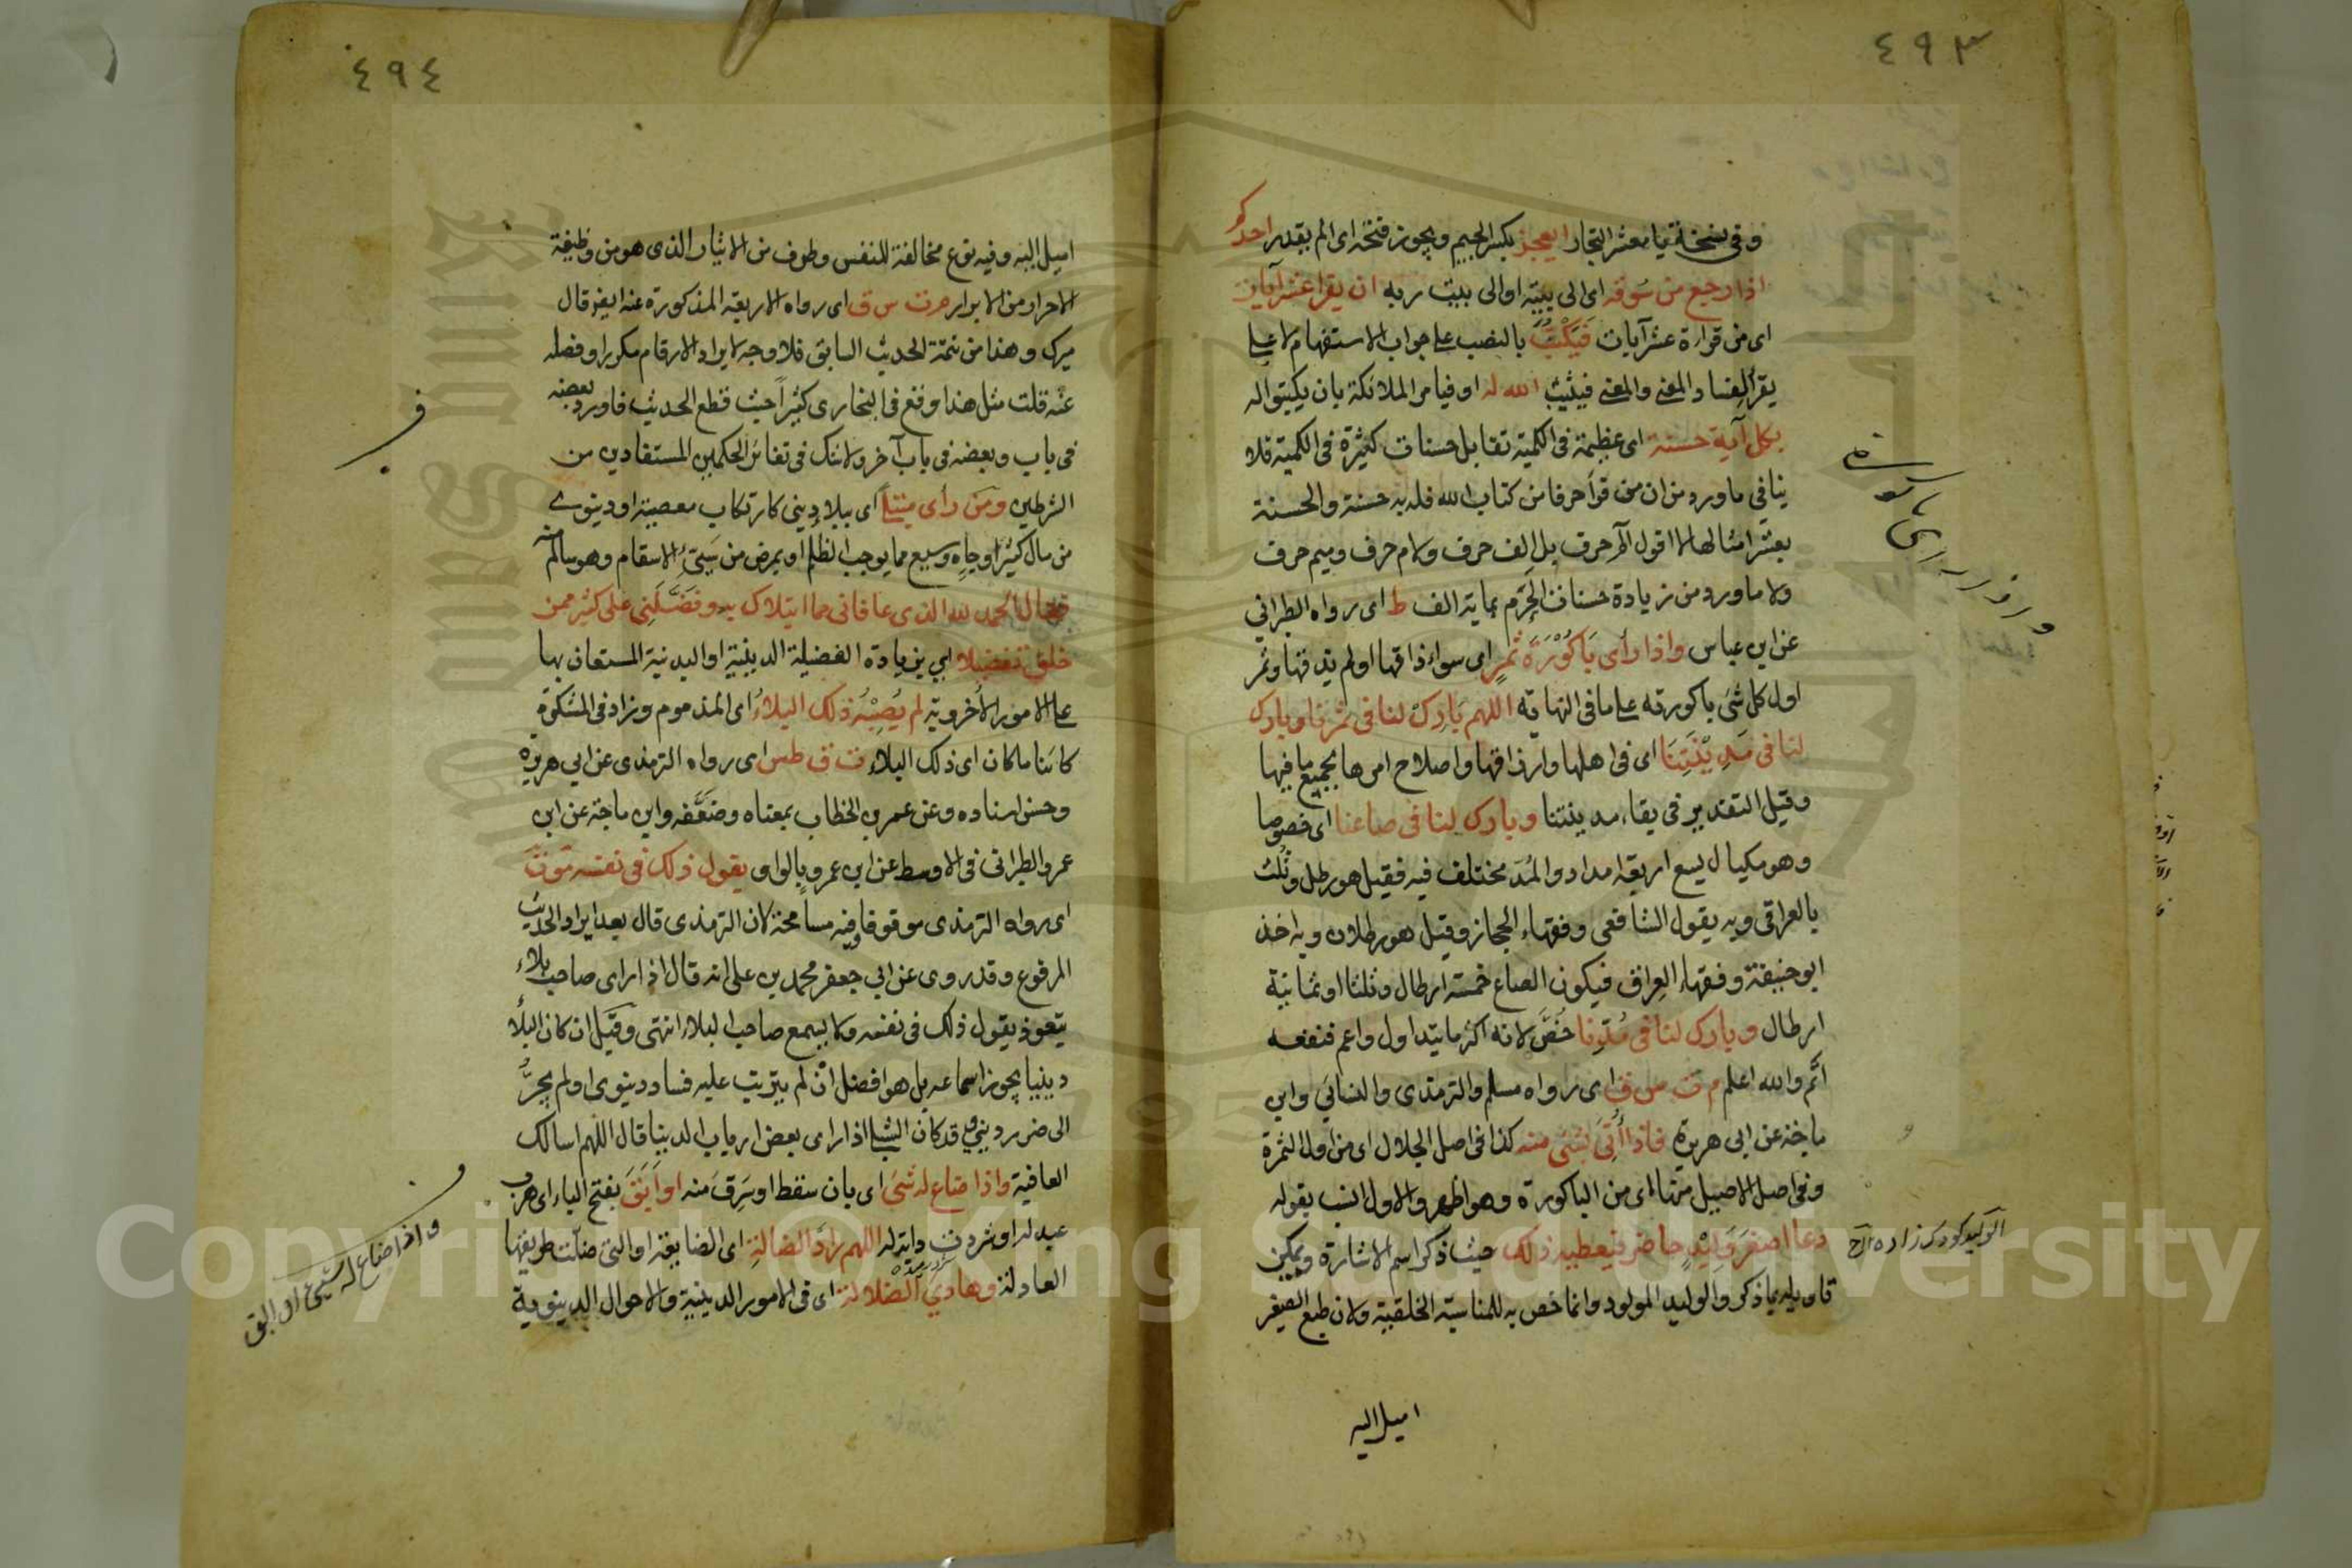 ٤٩٣
وفي نسخة يا معشر التجار ايعجز بكسر الجيم ويجوز فتحه اي الم يقدر احدكم
اذا رجع من سوقه اي الى بيته او الى بيت ربه ان يقرا عشر آيات
اى من قراءة عشر آيات فيكتب بالنصب على جواب الاستفهام لا على
يقرأ لفساد المعنى والمعنى فيثبت الله له او فيامر الملائكة بان يكتبوا له
بكل آية حسنة اى عظيمة فى الكمية تقابل حسنات كثيرة فى الكمية فلا
ينافى ما ورد من ان من قرأ حرفا من كتاب الله فله به حسنة والحسنة
بعشر امثالها لا اقول الم حرف بل الف حرف ولام حرف وميم حرف
ولا ما ورد من زيادة حسنات الحرم بماية الف ط اى رواه الطبراني
عن ابن عباس واذا رأى باكورة ثمر اى سواء ذاقها اولم يذقها وثمر
اول كل شئ باكورته على ما فى النهاية اللهم بارك لنا فى ثمرنا وبارك
لنا فى مدينتنا اى فى اهلها وارزاقها واصلاح امرها بجميع ما فيها
وقيل التقدير فى بقاء مدينتنا وبارك لنا فى صاعنا اى خصوصا
وهو مكيال يسع اربعة امداد والمد مختلف فيه فقيل هو رطل وثلث
بالعراقى وبه يقول الشافعى وفقهاء الحجاز وقيل هو رطلان وبه اخذ
ابو حنيفة وفقهاء العراق فيكون الصاع خمسة ارطال وثلثا او ثمانية
ارطال وبارك لنا فى مدنا خص لانه اكثر ما يتداول واعم فنفعه
اتم والله اعلم م ت س ق اى رواه مسلم والترمذى والنسائى وابن
ماجة عن ابى هريرة فاذا أتى بشئ منه كذا فى اصل الجلال اى من اول الثمرة
وفى اصل الاصيل منها اى من الباكورة وهو اظهر والاول انسب بقوله
دعا اصغر وليد حاضر فيعطيه ذلك حيث ذكر اسم الاشارة ويمكن
تاويله بما ذكر والوليد المولود وانما خص به للمناسبة الخلقية ولان طبع الصغير
اميل اليه
واذا راى باكورة
الوليد كودك زاده
٤٩٤
اميل اليه وفيه نوع مخالفة للنفس وطرف من الايثار الذى هو من وظيفة
الاحرار من الابرار م ت س ق اى رواه الاربعة المذكورة عنه ايضا قال
ميرك وهذا من تتمة الحديث السابق فلا وجه لايراد الارقام مكررا وفصله
عنه قلت مثل هذا وقع فى البخارى كثيرا حيث قطع الحديث فاورد بعضه
فى باب وبعضه فى باب آخر ولا شك فى تغاير الحكمين المستفادين من
الشرطين ومن رأى مبتلى اى ببلاء دينى كارتكاب معصية او دنيوى
من مال كثير او جاه وسيع مما يوجب الظلم او يمرض من سيئ الاسقام وهو سالم منه
فقال الحمد لله الذى عافانى مما ابتلاك به وفضلنى على كثير ممن
خلق تفضيلا اى بزيادة الفضيلة الدينية او البدنية المستعان بها
على الامور الاخروية لم يصبه ذلك البلاء اى المذموم وزاد فى المشكوة
كائنا ما كان اى ذلك البلاء ت ق طس اى رواه الترمذى عن ابى هريرة
وحسن اسناده وعن عمر بن الخطاب بمعناه وضعفه وابن ماجة عن ابن
عمر والطبرانى فى الاوسط عن ابن عمرو بالواو يقول ذلك فى نفسه موت
اى رواه الترمذى موقوفا وفيه مسامحة لان الترمذى قال بعد ايراد الحديث
المرفوع وقد روى عن ابى جعفر محمد بن على انه قال اذا راى صاحب بلاء
يتعوذ يقول ذلك فى نفسه ولا يسمع صاحب البلاء انتهى وقيل ان كان البلاء
دينيا يجوز اسماعه بل هو افضل ان لم يترتب عليه فساد دنيوى او لم يجر
الى ضرر دينى وقد كان الشبلى اذا راى بعض ارباب الدنيا قال اللهم اسالك
العافية واذا ضاع له شئ اى بان سقط او سرق منه او أبق بفتح الباء اى هرب
عبد له او شردت دابة له اللهم راد الضالة اى الضايعة او التى ضلت طريقها
العادلة وهادى الضلالة اى فى الامور الدينية والاحوال الدنيوية
واذا ضاع له شئ او ابق
Copyright © King Saud University
1957